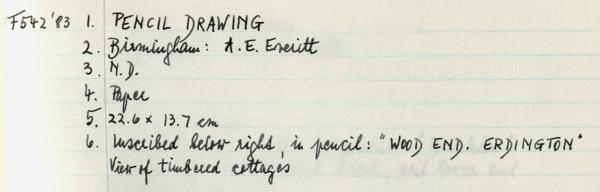 F542'83 1. PENCIL DRAWING
2. Birmingham: A. E. Everitt
3. N.D.
4. Paper
5. 22.6 x 13.7 cm
6. Inscribed below right, in pencil: "WOOD END. ERDINGTON"
View of timbered cottages